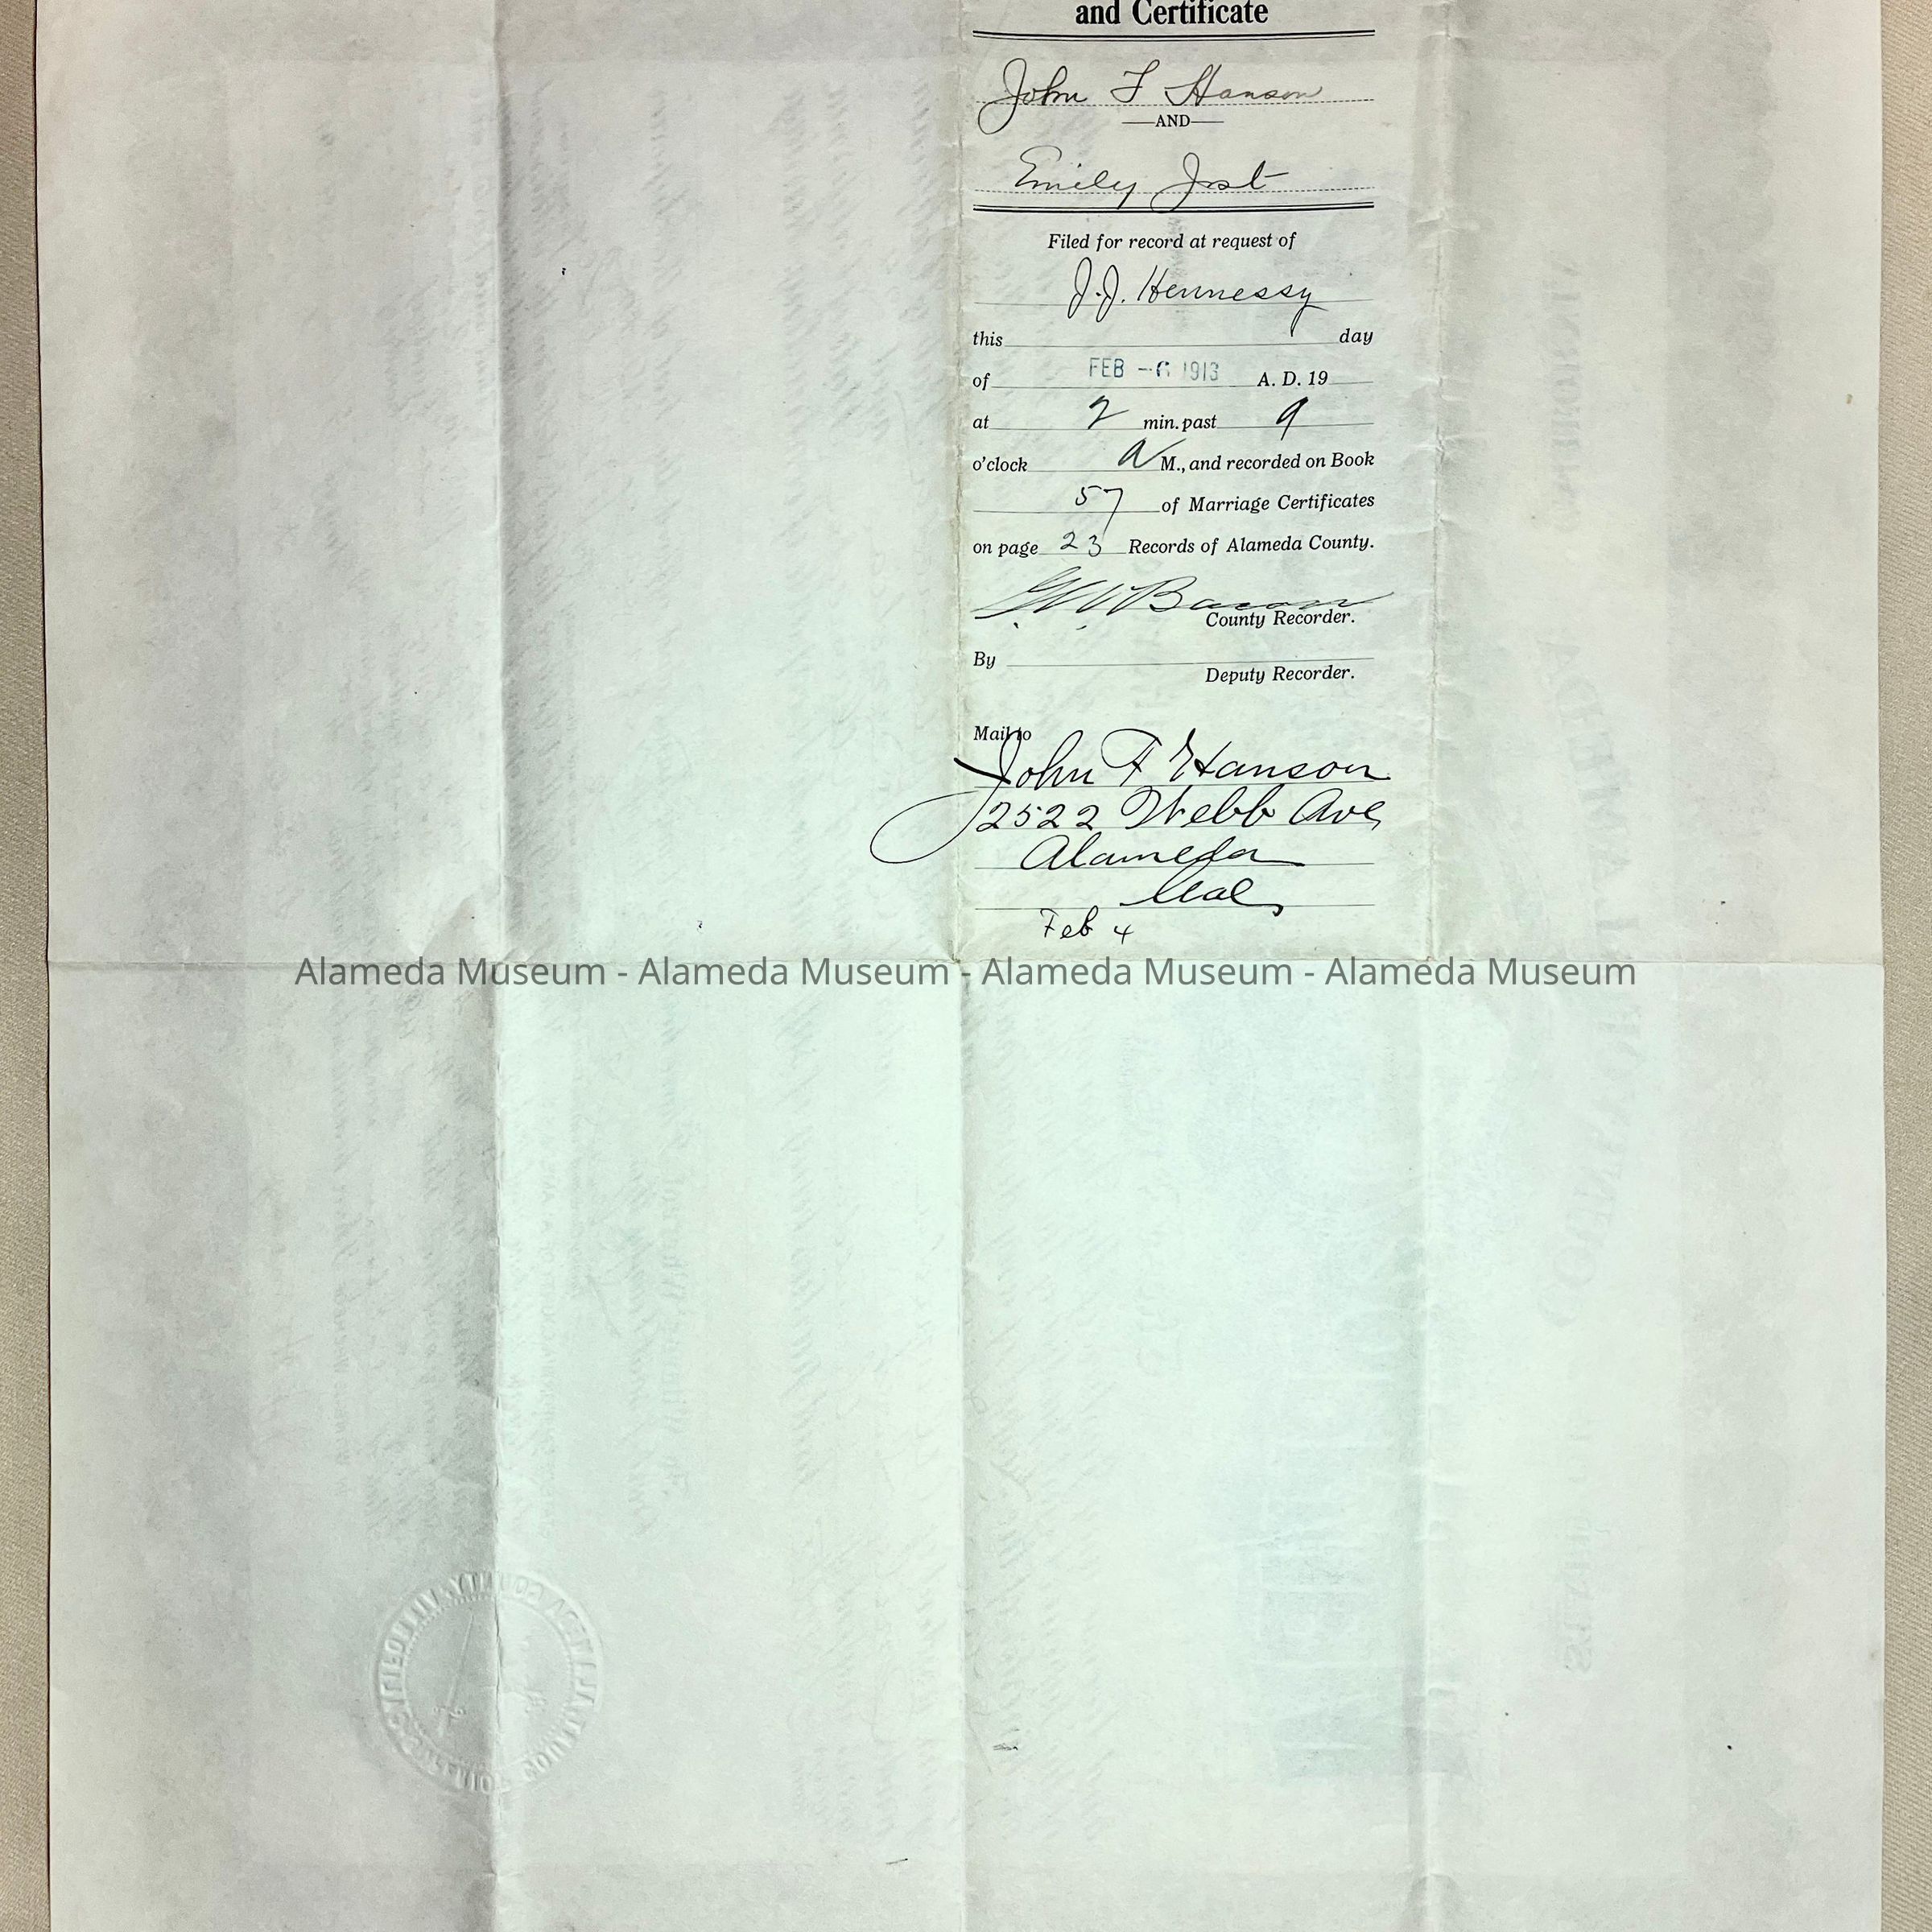 and Certificate
John F Hanson
AND
Emily Jost
Filed for record at request of
J.J. Hennessy
this day
of FEB -6 1913 A. D. 19
at 2 min. past 9
o'clock A M., and recorded on Book
57 of Marriage Certificates
on page 23 Records of Alameda County.
G. W. Bacon
County Recorder.
By
Deputy Recorder.
Mail to
John F Hanson
2522 Webb Ave
Alameda
Cal,
Feb 4
Alameda Museum - Alameda Museum - Alameda Museum - Alameda Museum